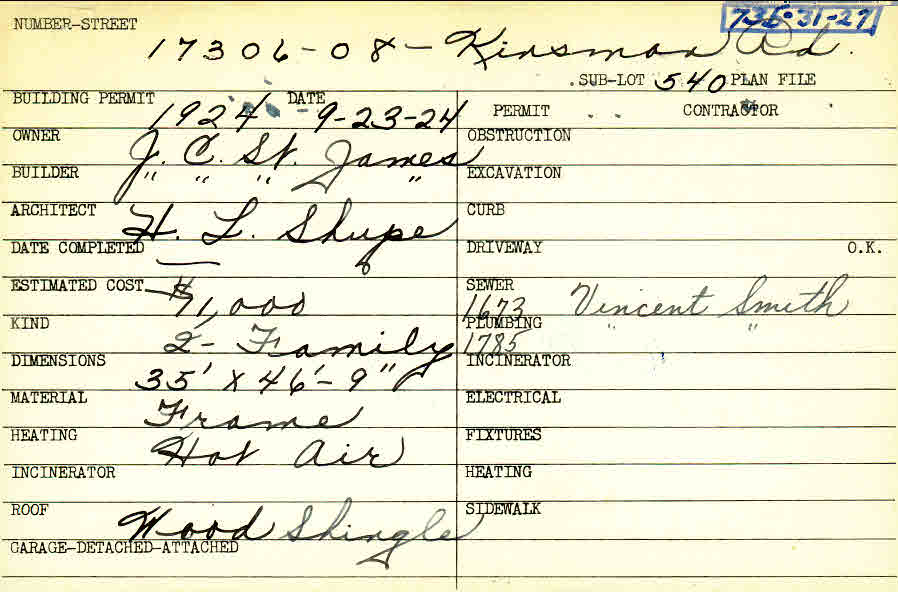 NUMBER-STREET 736-31-29
17306-08- Kinsman Rd.
SUB-LOT 540 PLAN FILE
BUILDING PERMIT 1924 DATE 9-23-24 PERMIT CONTRACTOR
OWNER J. C. St. James OBSTRUCTION
BUILDER " " " " EXCAVATION
ARCHITECT H. L. Shupe CURB
DATE COMPLETED — DRIVEWAY O.K.
ESTIMATED COST $11,000 SEWER 1673 Vincent Smith
KIND 2-Family PLUMBING 1785 " "
DIMENSIONS 35' X 46'-9" INCINERATOR
MATERIAL Frame ELECTRICAL
HEATING Hot Air FIXTURES
INCINERATOR HEATING
ROOF Wood Shingle SIDEWALK
GARAGE-DETACHED-ATTACHED